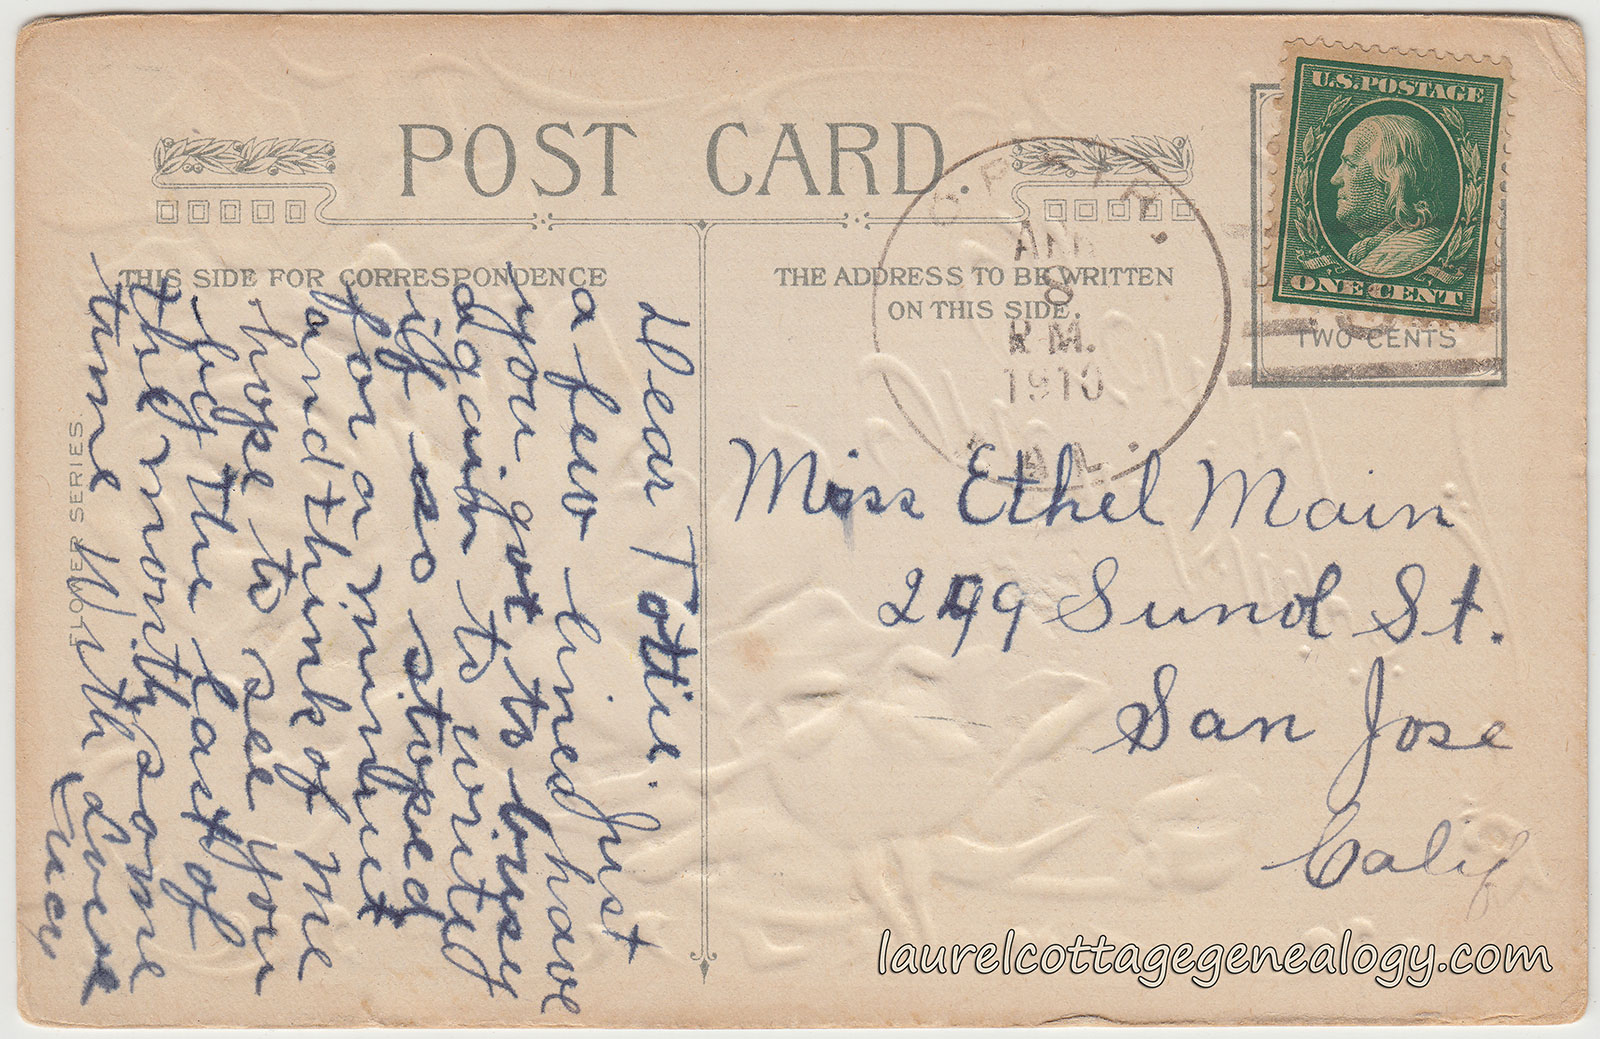 POST CARD.
THIS SIDE FOR CORRESPONDENCE
THE ADDRESS TO BE WRITTEN
ON THIS SIDE.
U.S. POSTAGE
ONE CENT
TWO CENTS
P.M.
1910
CAL.
FLOWER SERIES.
Dear Tottie.
a few lines just
you got to busy have
again to writed
if so stoped
for a minuet
and think of me
hope to see you
by the last of
the month some
time With Love
Lucy
Miss Ethel Main
299 Sunol St.
San Jose
Calif
laurelcottagegenealogy.com